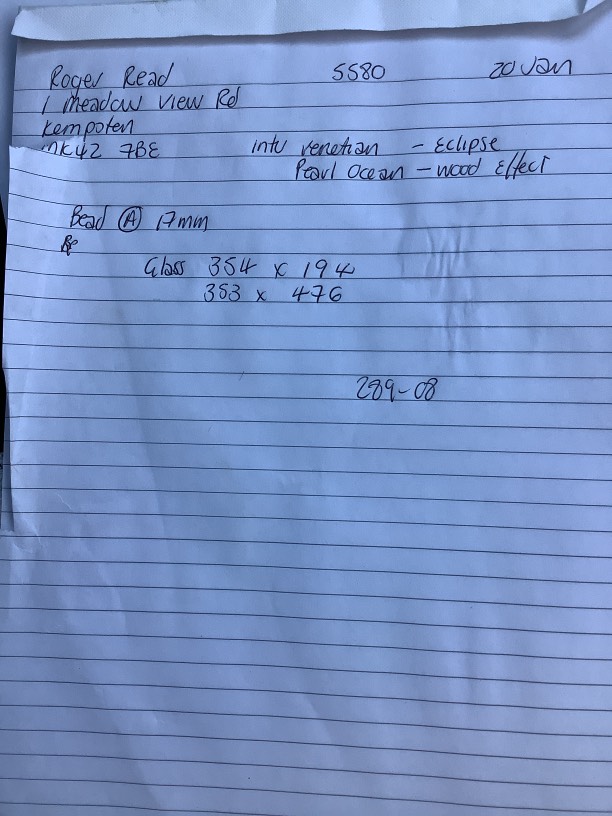 Roger Read 5580 20 Jan
1 meadow view Rd
Kempoten
MK42 7BE intu venetian - Eclipse
Pearl Ocean - wood Effect
Bead Ⓐ 17mm
Glass 354 x 194
353 x 476
289-08